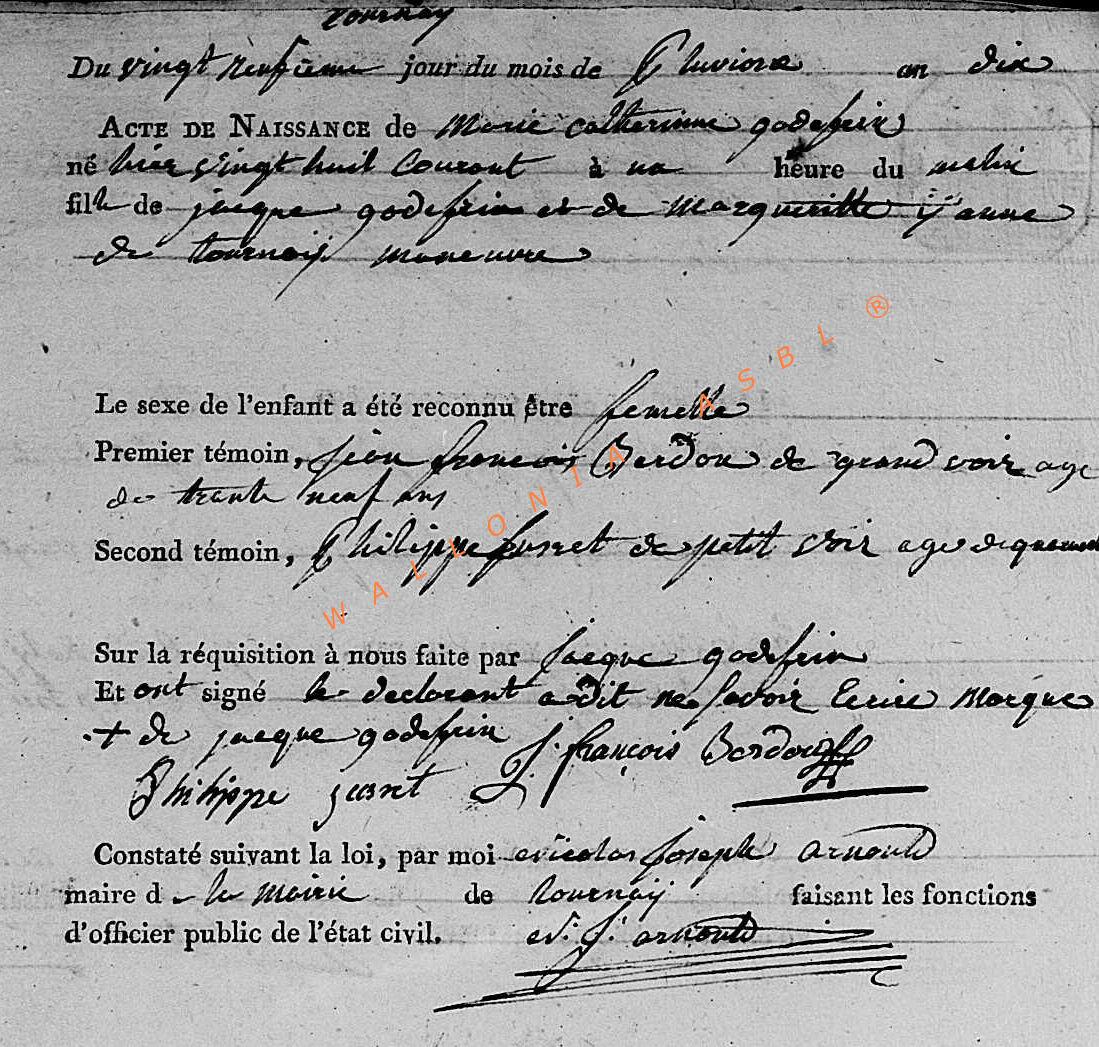 tournay
Du vingt neufieme jour du mois de Pluviose an dix
ACTE DE NAISSANCE de Marie catherinne godefrin
né hier vingt huit Courant à un heure du matin
fille de jacque godefrin et de Margueritte
de tournaij maneuvre
Le sexe de l'enfant a été reconnu être femelle
Premier témoin, jean francois Berdou de grand voir age
de trante neuf ans
Second témoin, Philippe de petit voir age de
Sur la réquisition à nous faite par jacque godefrin
Et ont signé le declarant a dit ne savoir Ecrire Marque
+ de jacque godefrin J. françois Berdou
Philippe
Constaté suivant la loi, par moi nicolas joseph arnould
maire d la mairie de tournaij faisant les fonctions
d'officier public de l'état civil. N. J. arnould
WALLONIA ASBL ®